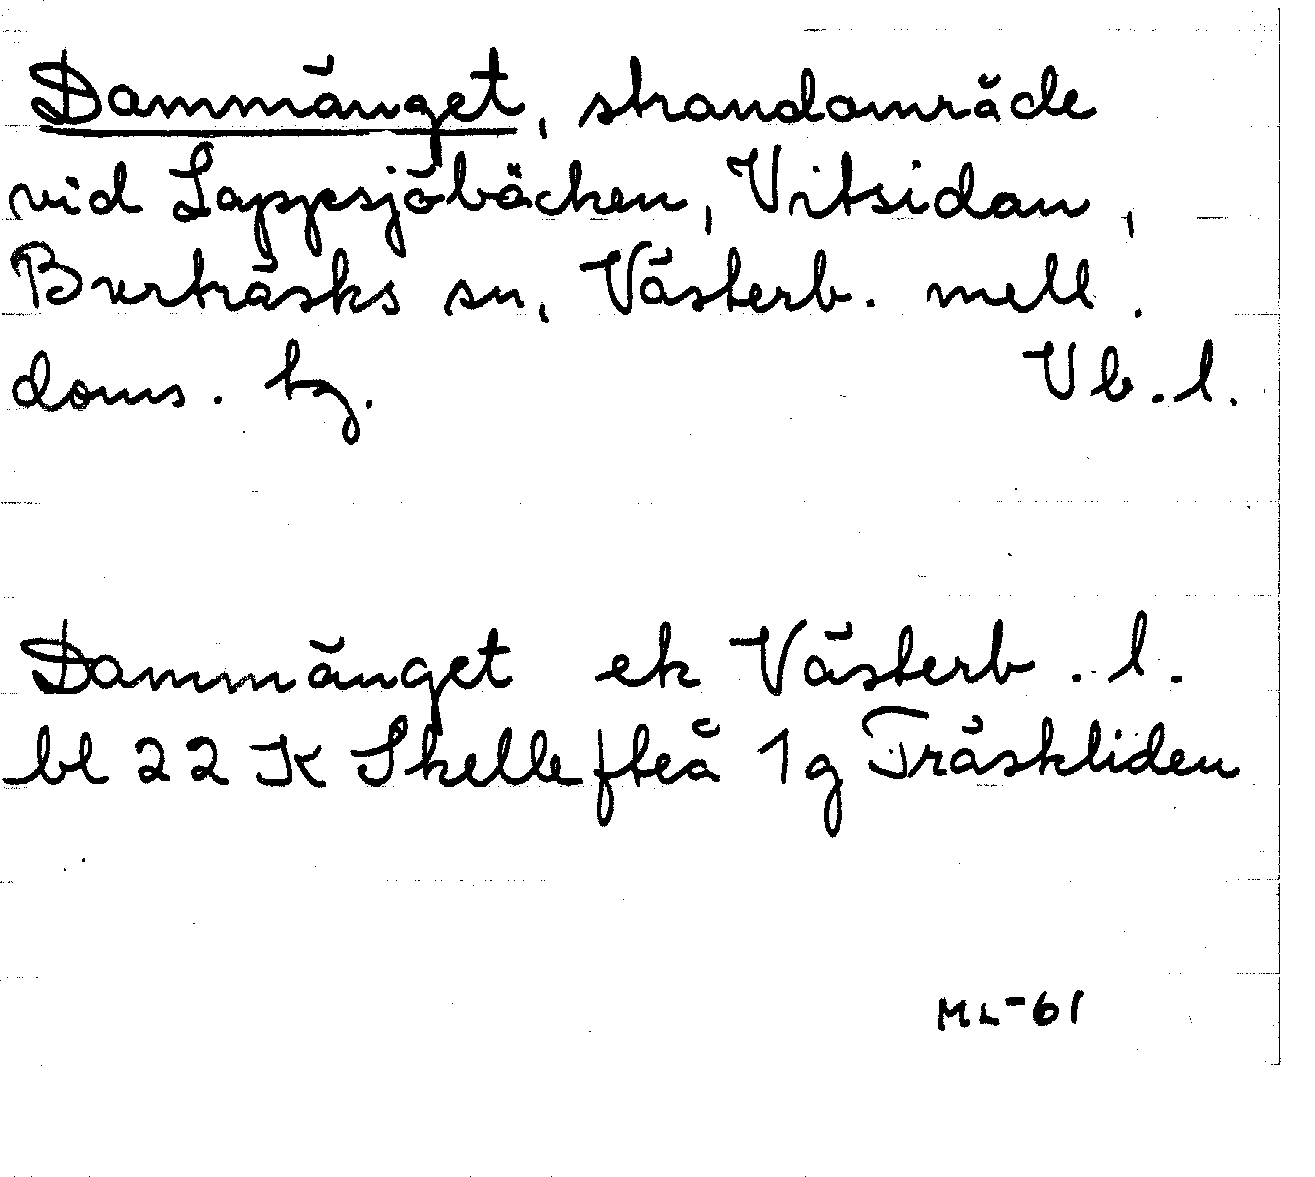 Dammänget, strandområde
vid Lappsjöbäcken, Vitsidan,
Burträsks sn, Västerb. mell.
doms. hg. Vb. l.
Dammänget ek Västerb. l.
bl 22 K Skellefteå 1g Träskliden
ML-61